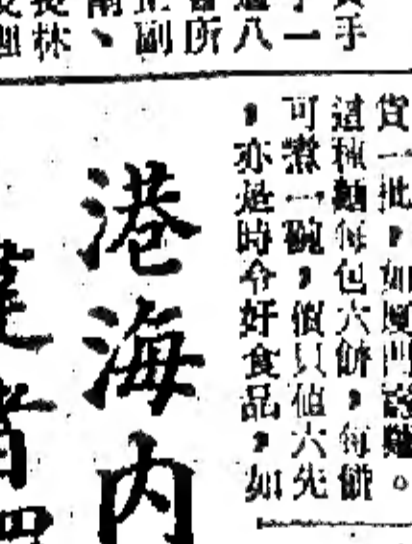 手
一
八
所
副
林
貨一批，如厦門麵。
這種麵每包六餅，每餅
可煮一碗，價只值六先
，亦是時令好食品，如
港海內
者